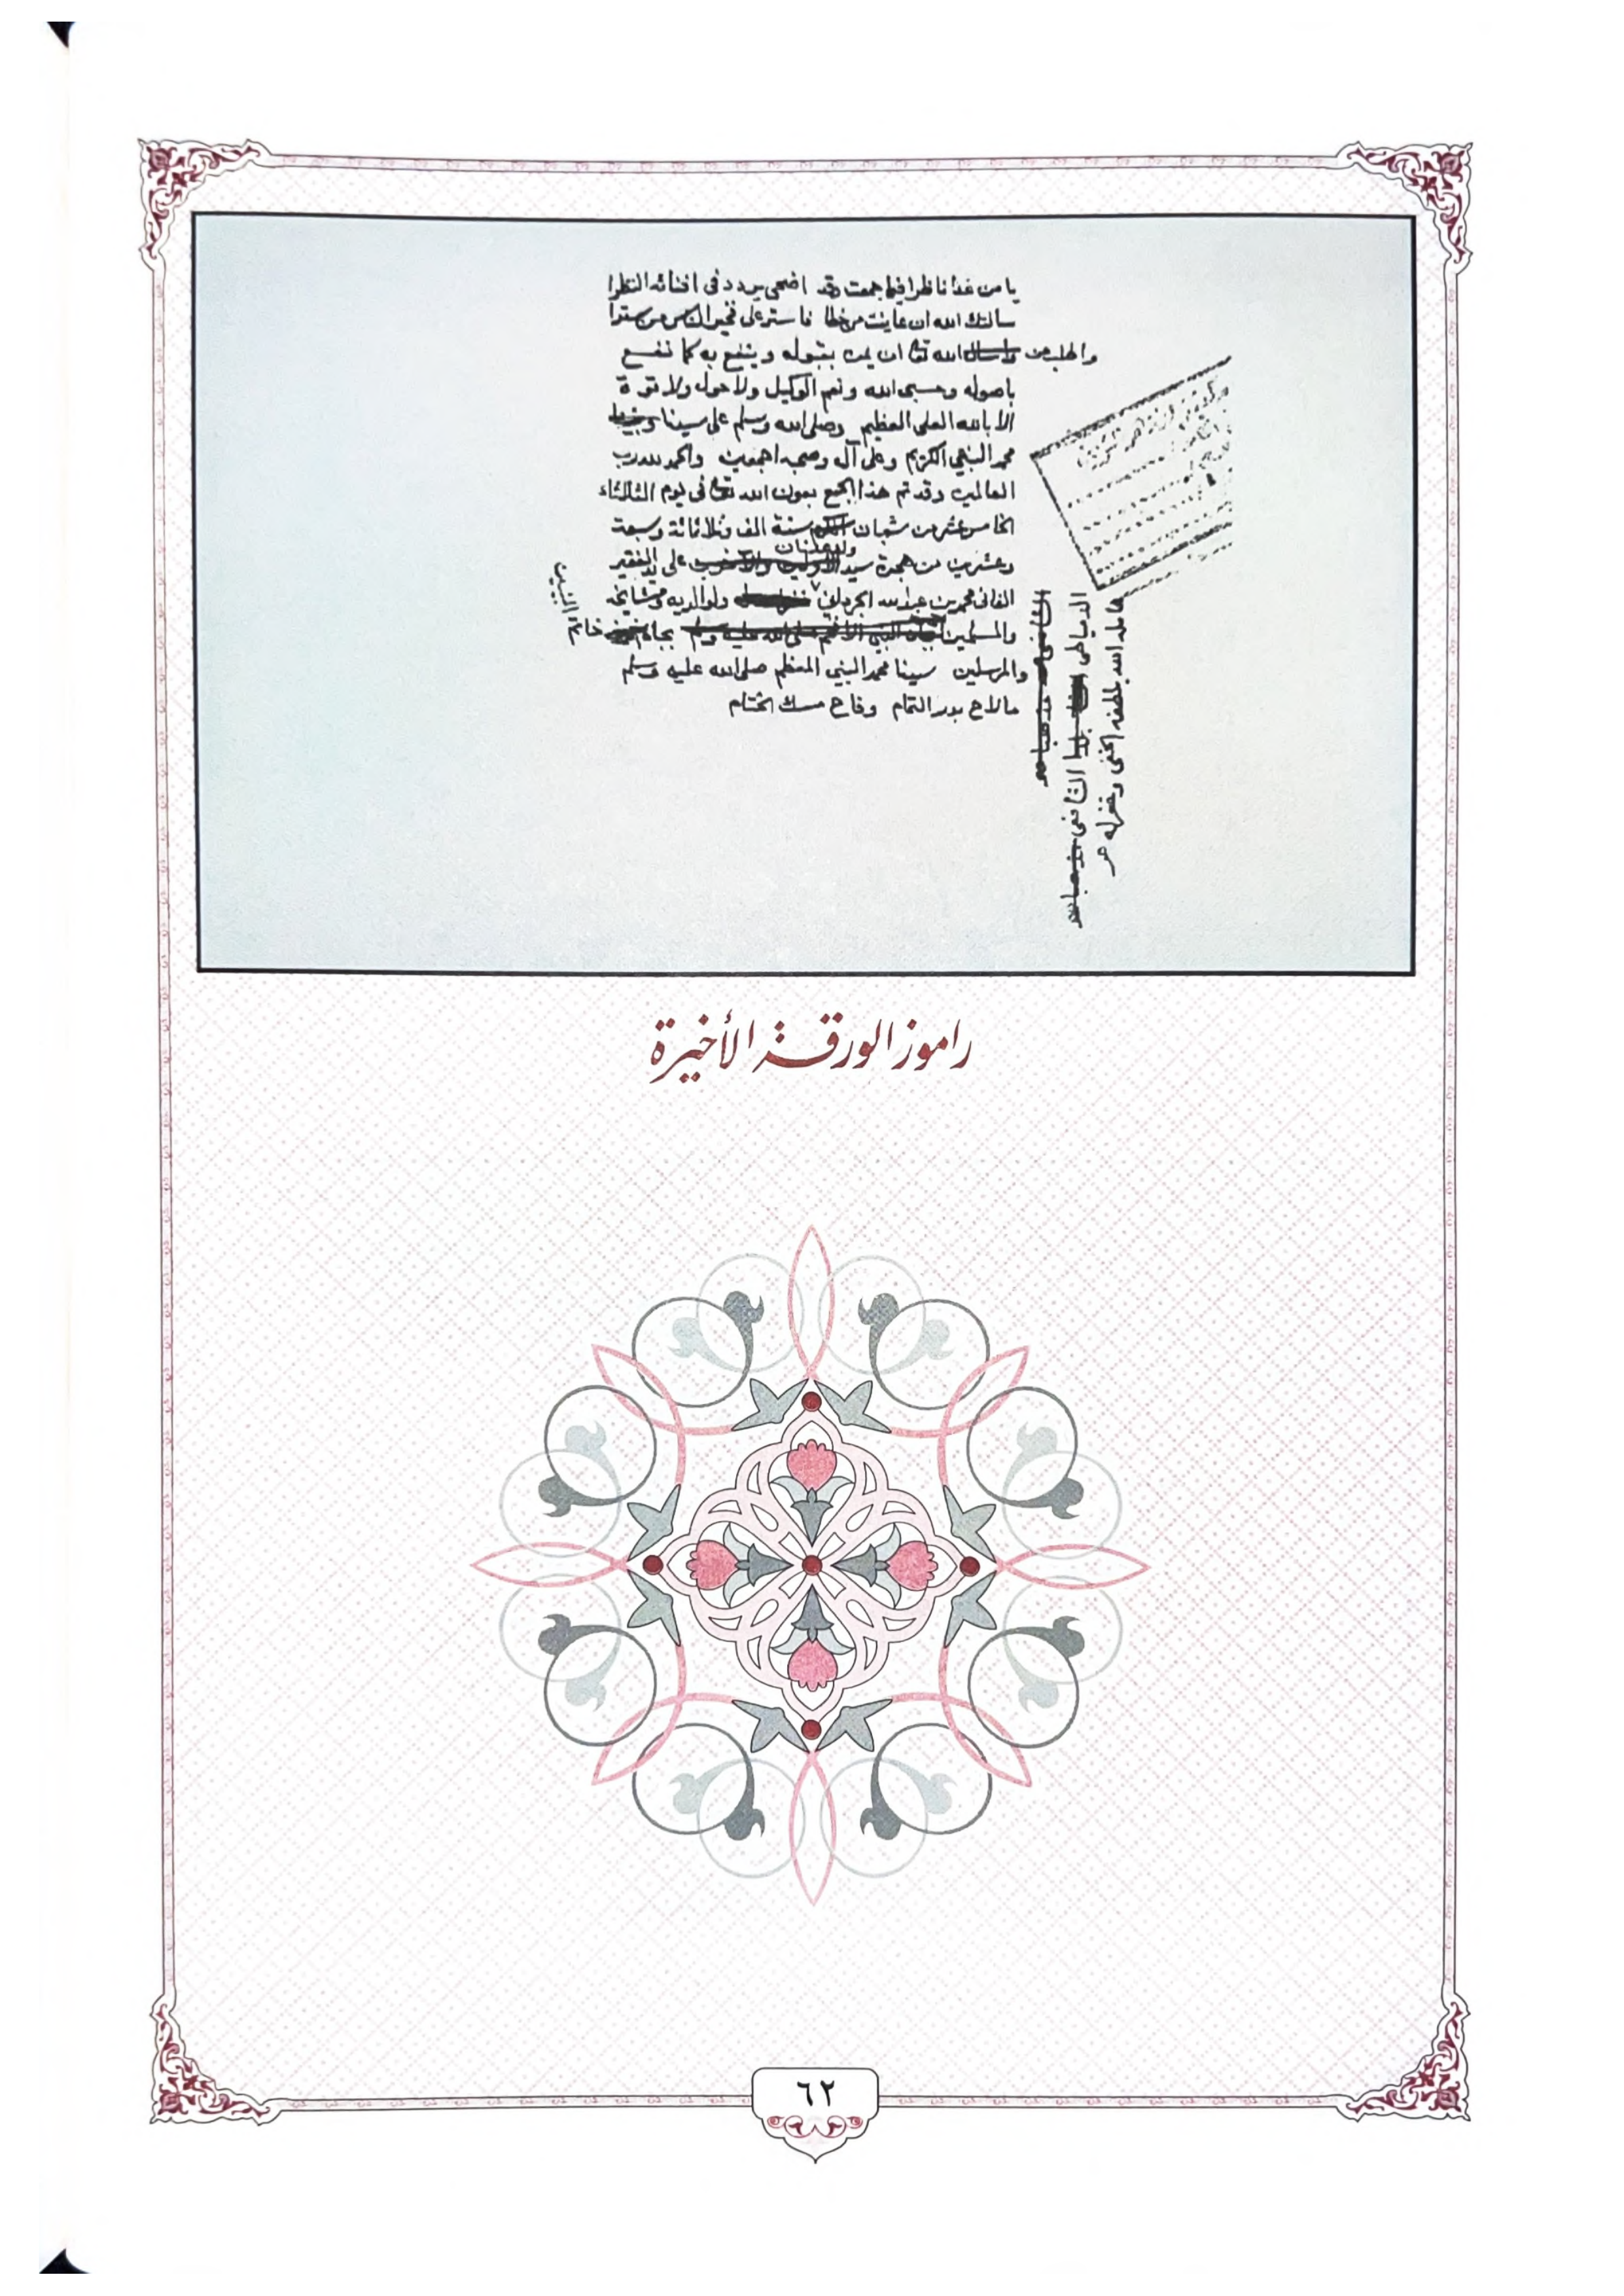 يا من غدا ناظرا فيما جمعت وقد اضحى يردد في افنائه النظرا
سالتك الله ان عاينت من خطا فاستر على فخير الناس من سترا
واطلب من الله تعا ان يمن بقبوله وينفع به كما نفع
باصوله وحسبى الله ونعم الوكيل ولا حول ولا قوة
الا بالله العلى العظيم وصلى الله وسلم على سيدنا
محمد النبي الكريم وعلى آله وصحبه اجمعين والحمد لله رب
العالمين وقد تم هذا الجمع بعون الله تعا فى يوم الثلاثاء
الخامس عشر من شعبان سنة الف وثلاثمائة وسبعة
وعشرين من هجرة سيد ولد عدنان على يد الفقير
الفانى محمد بن عبد الله الجرداني ولوالديه ومشايخه
والمسلمين بجاه خاتم
النبيين
والمرسلين سيدنا محمد النبي المعظم صلى الله عليه وسلم
ما لاح بدر التمام وفاح مسك الختام
الدمياطى الشافعى
عامله الله بلطفه الخفى وغفر له
راموز الورقة الأخيرة
٦٢